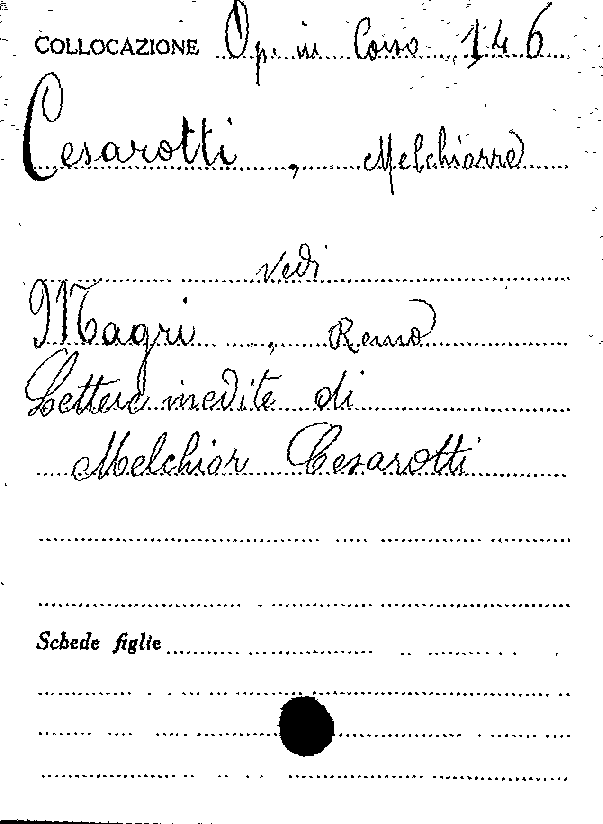 COLLOCAZIONE Op. in Corso 146
Cesarotti, Melchiorre
Vedi
Magri, Remo
Lettere inedite di
Melchior Cesarotti
Schede figlie